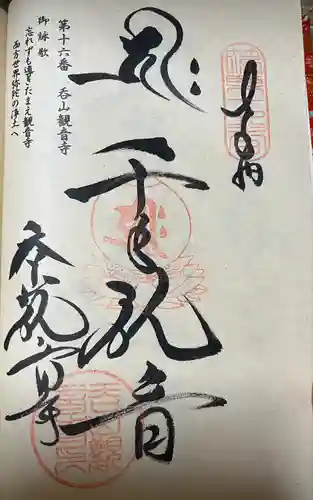 奉拝
千手観音
呑山観音寺
第十六番 呑山観音寺
御詠歌
忘れずも導きたまえ観音寺
西方世界弥陀の浄土へ